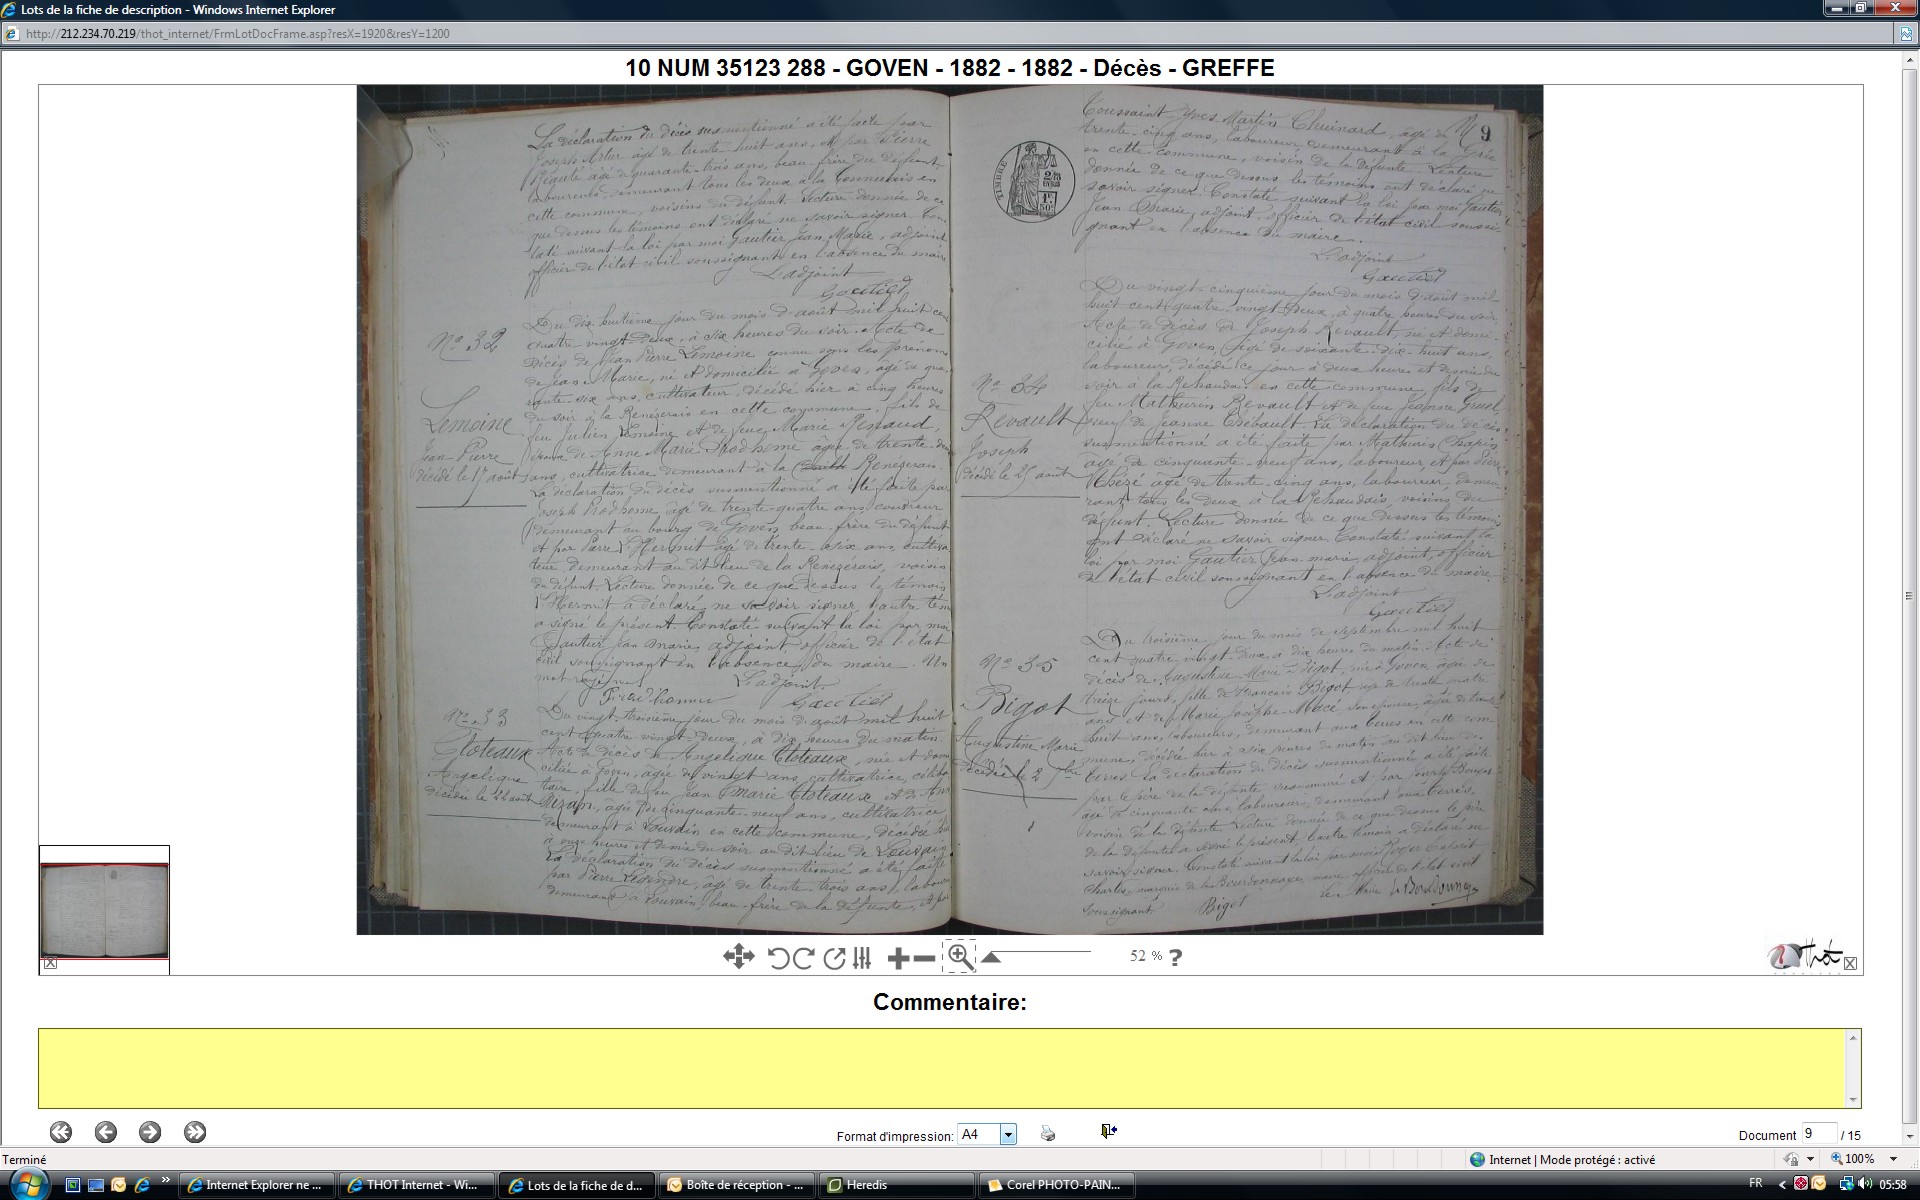 Lots de la fiche de description - Windows Internet Explorer
http://212.234.70.219/thot_internet/FrmLotDocFrame.asp?resX=1920&resY=1200
10 NUM 35123 288 - GOVEN - 1882 - 1882 - Décès - GREFFE
La déclaration du décès susmentionné a été faite par
Joseph Artur âgé de trente-huit ans, et par Pierre
âgé de quarante-trois ans, beau-frère du défunt
laboureurs, demeurant tous les deux à la en
cette commune, voisins du défunt. Lecture donnée de ce
que dessus les témoins ont déclaré ne savoir signer. Cons-
taté suivant la loi par moi Gautier Jean Marie, adjoint
officier de l'état civil soussignant en l'absence du maire
L'adjoint
Gautier
N° 32
Lemoine
Jean-Pierre
décédé le 17 août
Du dix-huitième jour du mois d'août mil huit cent
quatre-vingt-deux, à six heures du soir. Acte de
décès de Jean Pierre Lemoine connu sous les prénoms
de Jean Marie, né et domicilié à Goven, âgé de qua-
rante-six ans, cultivateur, décédé hier à cinq heures
du soir à la Renezerais en cette commune, fils de
feu Julien Lemoine et de feue Marie Renaud,
époux de Anne Marie Prodhomme âgée de trente-
ans, cultivatrice demeurant à la Renezerais.
La déclaration du décès susmentionné a été faite par
Joseph Prodhomme, âgé de trente-quatre ans, couvreur
demeurant au bourg de Goven, beau-frère du défunt
et par Pierre L'Hermit âgé de trente-six ans, cultiva-
teur, demeurant au dit lieu de la Renezerais, voisin
du défunt. Lecture donnée de ce que dessus le témoin
L'Hermit a déclaré ne savoir signer, l'autre témoin
a signé le présent. Constaté suivant la loi par moi
Gautier Jean Marie, adjoint officier de l'état
civil soussignant en l'absence du maire. Un
mot rayé nul
L'adjoint
Prodhomme Gautier
N° 33
Cloteaux
Angelique
décédée le 22 août
Du vingt-troisième jour du mois d'août mil huit
cent quatre-vingt-deux, à dix heures du matin.
Acte de décès de Angelique Cloteaux, née et domi-
ciliée à Goven, âgée de vingt ans, cultivatrice, céliba-
taire, fille de feu Jean Marie Cloteaux et de Anne
âgée de cinquante-neuf ans, cultivatrice
demeurant à Louvain en cette commune, décédée hier
à onze heures et demie du soir au dit lieu de Louvain
La déclaration du décès susmentionné a été faite
par Pierre Legendre, âgé de trente-trois ans, laboureur
demeurant à Louvain, beau-frère de la défunte, et par
9
TIMBRE
Toussaint Yves Martin Chuinard, âgé de
trente-cinq ans, laboureur, demeurant à la
en cette commune, voisin de la défunte. Lecture
donnée de ce que dessus les témoins ont déclaré ne
savoir signer. Constaté suivant la loi par moi Gautier
Jean Marie, adjoint officier de l'état civil soussi-
gnant en l'absence du maire.
L'adjoint
Gautier
N° 34
Revault
Joseph
décédé le 25 août
Du vingt-cinquième jour du mois d'août mil
huit cent quatre-vingt-deux, à quatre heures du soir.
Acte de décès de Joseph Revault, né et domi-
cilié à Goven, âgé de soixante-dix-huit ans,
laboureur, décédé ce jour à deux heures et demie du
soir à la Rehaudais en cette commune, fils de
feu Mathurin Revault et de feue Jeanne
veuf de Jeanne Thebault. La déclaration du décès
susmentionné a été faite par Mathurin Chapin
âgé de cinquante-neuf ans, laboureur, et par Pierre
âgé de trente-cinq ans, laboureur, demeu-
rant tous les deux à la Rehaudais, voisins du
défunt. Lecture donnée de ce que dessus les témoins
ont déclaré ne savoir signer. Constaté suivant la
loi par moi Gautier Jean Marie, adjoint, officier
de l'état civil soussignant en l'absence du maire.
L'adjoint
Gautier
N° 35
Bigot
Augustine Marie
décédée le 2 7bre
Du troisième jour du mois de septembre mil huit
cent quatre-vingt-deux, à dix heures du matin. Acte de
décès de Augustine Marie Bigot, née à Goven âgée de
treize jours, fille de François Bigot âgé de trente-quatre
ans et de Marie Josèphe Macé son épouse, âgée de trente-
huit ans, laboureurs, demeurant aux en cette com-
mune, décédée hier à six heures du matin au dit lieu des
La déclaration du décès susmentionné a été faite
par le père de la défunte susnommé et par
âgé de cinquante ans laboureur, demeurant aux
voisin de la défunte. Lecture donnée de ce que dessus le père
de la défunte a signé le présent, l'autre témoin a déclaré ne
savoir signer. Constaté suivant la loi par moi Roger
Charles, marquis de la Bourdonnaye, maire, officier de l'état civil
soussignant. Bigot
52 %
?
Thot
Commentaire:
Format d'impression: A4
Document 9 / 15
Terminé
Internet | Mode protégé : activé
100%
Internet Explorer ne ...
THOT Internet - Wi...
Lots de la fiche de d...
Boîte de réception - ...
Heredis
Corel PHOTO-PAIN...
FR
05:58